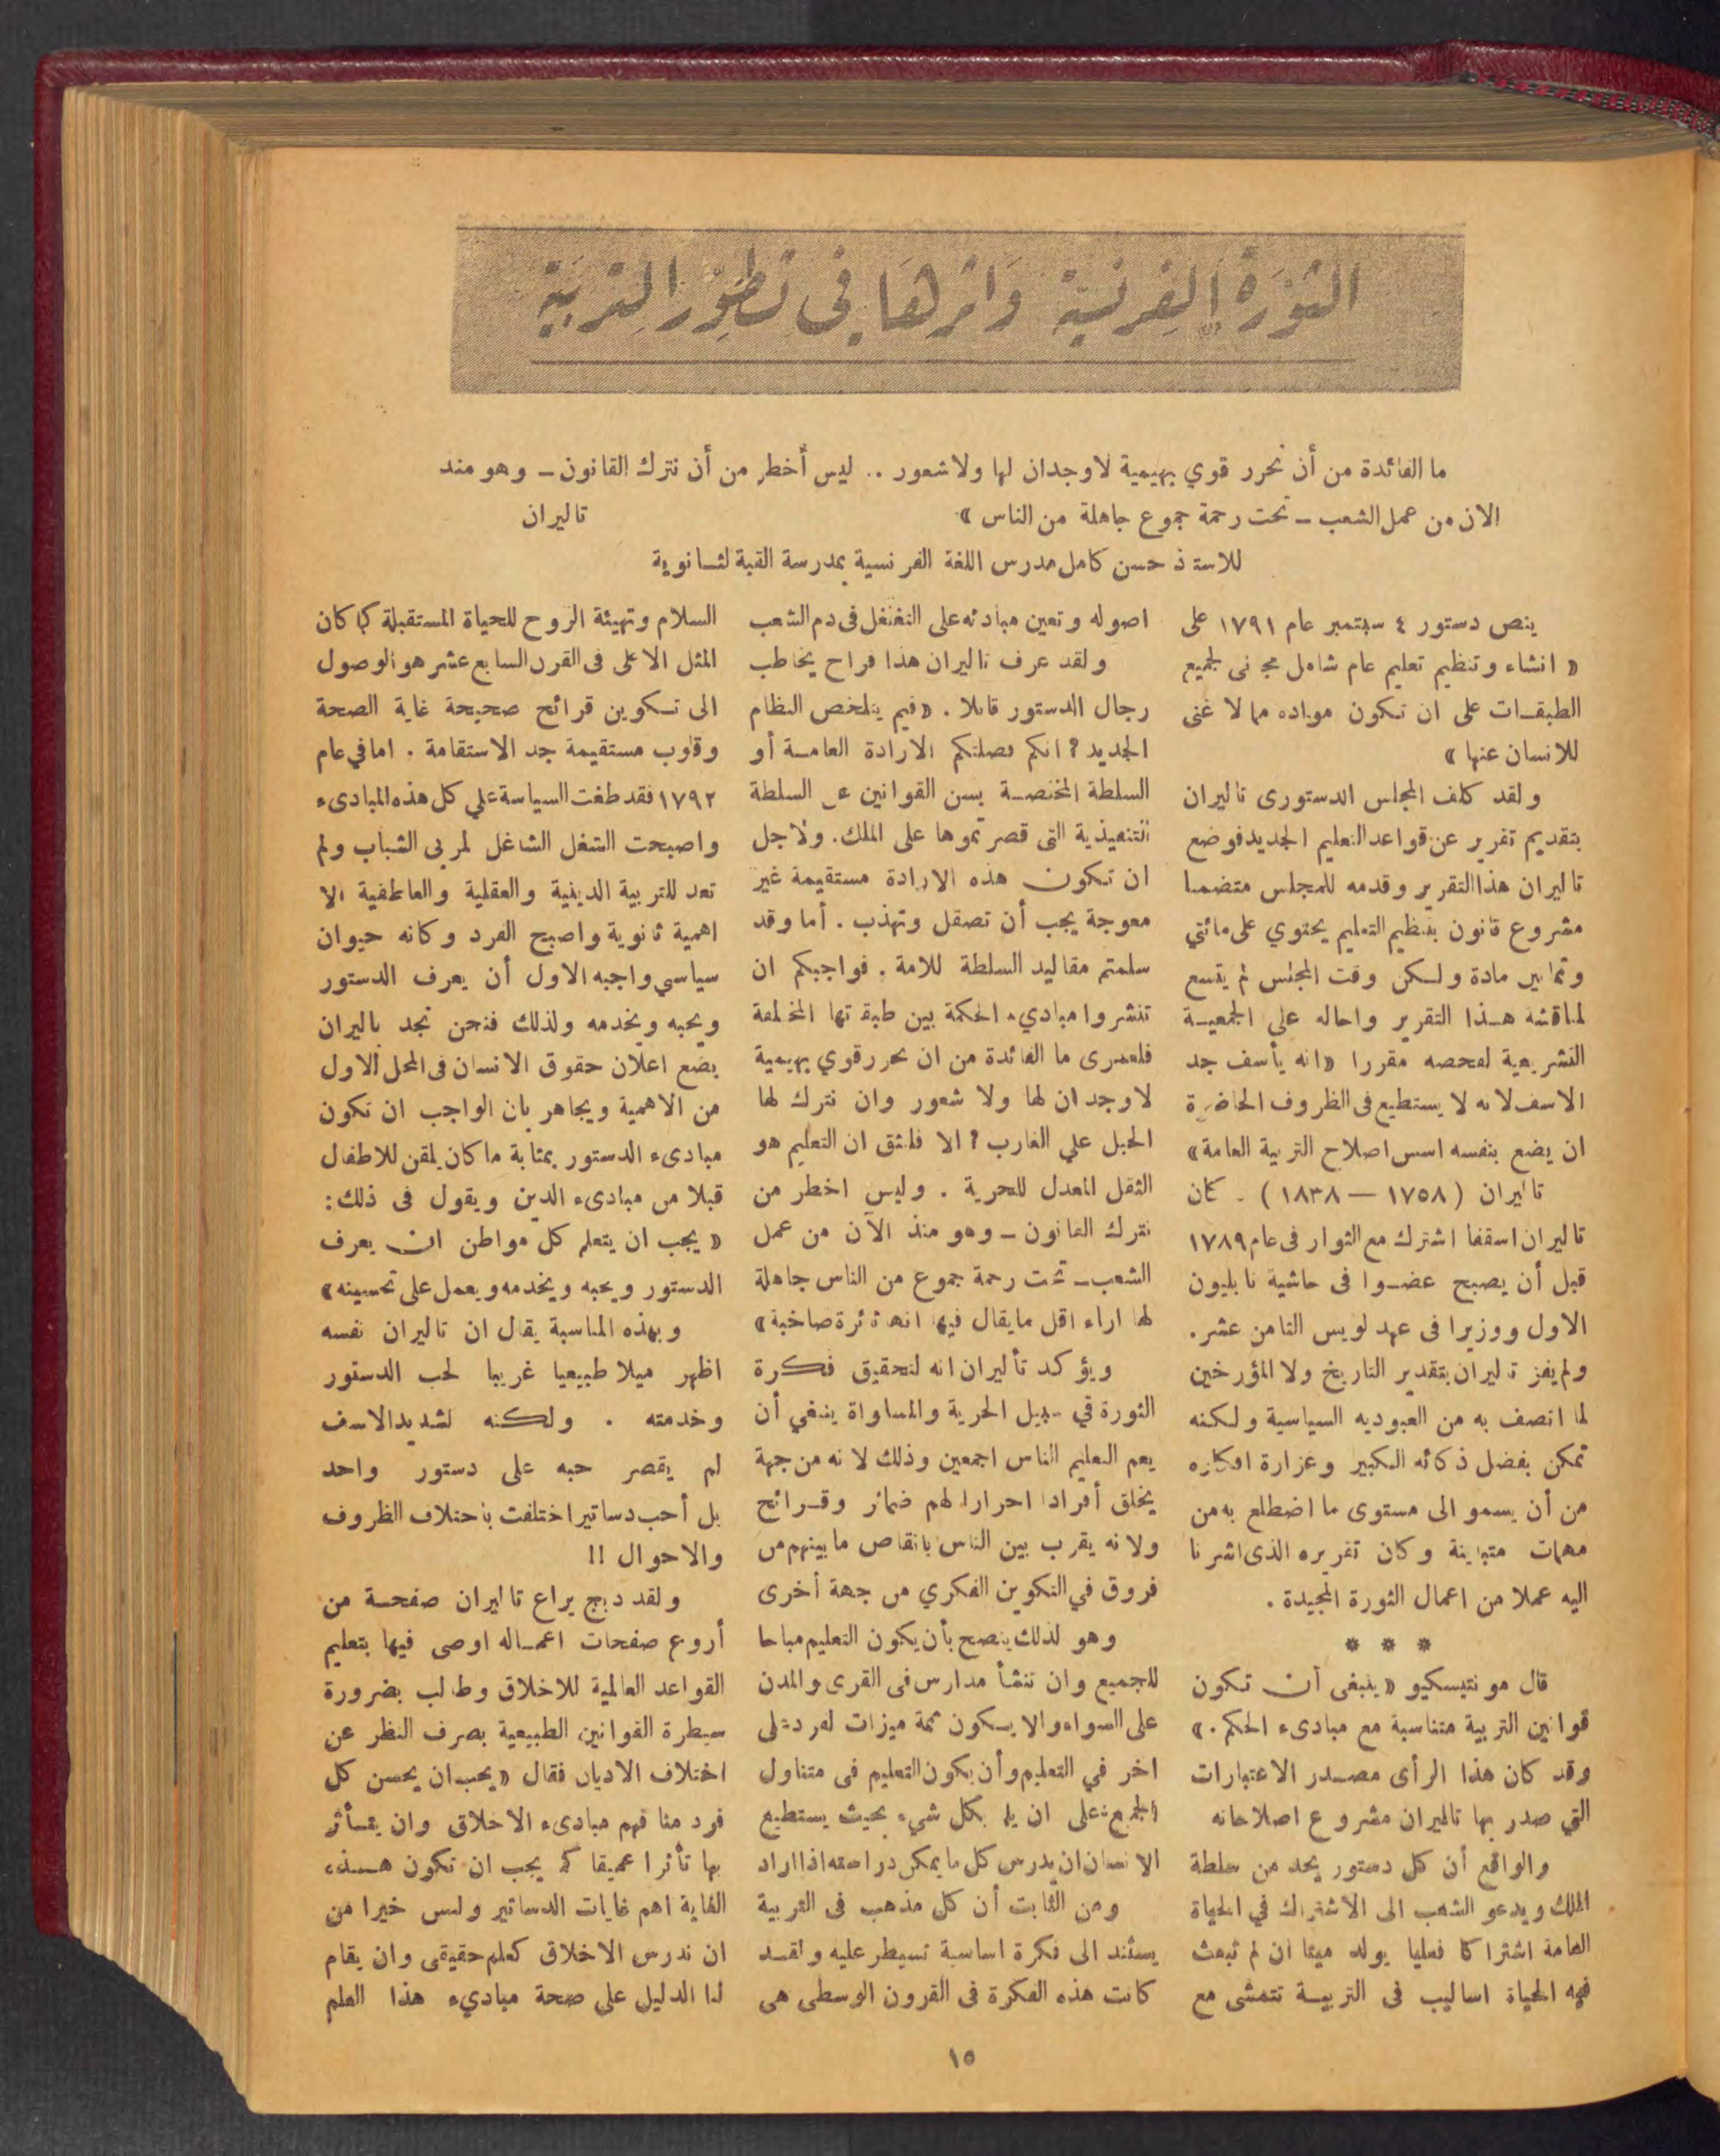 الثورة الفرنسية واثرها في تطور التربية
ما الفائدة من أن نحرر قوي بهيمية لاوجدان لها ولا شعور .. ليس أخطر من أن نترك القانون ــ وهو منذ
الان من عمل الشعب ــ تحت رحمة جموع جاهلة من الناس »
تاليران
للاستاذ حسن كامل مدرس اللغة الفرنسية بمدرسة القبة الثانوية
ينص دستور ٤ سبتمبر عام ١٧٩١ على
« انشاء وتنظيم تعليم عام شامل مجانى لجميع
الطبقات على ان تكون مواده مما لا غنى
للانسان عنها »
ولقد كلف المجلس الدستورى تاليران
بتقديم تقرير عن قواعد التعليم الجديد فوضع
تاليران هذا التقرير وقدمه للمجلس متضمنا
مشروع قانون بتنظيم التعليم يحتوي على مائتي
وثمانين مادة ولكن وقت المجلس لم يتسع
لمناقشة هذا التقرير واحاله علي الجمعية
التشريعية لفحصه مقررا « انه يأسف جد
الاسف لانه لا يستطيع فى الظروف الحاضرة
ان يضع بنفسه اسس اصلاح التربية العامة »
تاليران ( ١٧٥٨ — ١٨٣٨ ) . كان
تاليران اسقفا اشترك مع الثوار فى عام ١٧٨٩
قبل أن يصبح عضوا فى حاشية نابليون
الاول ووزيرا فى عهد لويس الثامن عشر .
ولم يفز تاليران بتقدير التاريخ ولا المؤرخين
لما اتصف به من العبوديه السياسية ولكنه
تمكن بفضل ذكائه الكبير وغزارة افكاره
من أن يسمو الى مستوى ما اضطلع به من
مهمات متباينة وكان تقريره الذى اشرنا
اليه عملا من اعمال الثورة المجيدة .
* * *
قال مونتيسكيو « ينبغى أن تكون
قوانين التربية متناسبة مع مبادىء الحكم . »
وقد كان هذا الرأى مصدر الاعتبارات
التي صدر بها تاليران مشروع اصلاحاته
والواقع أن كل دستور يحد من سلطة
الملك ويدعو الشعب الى الاشتراك في الحياة
العامة اشتراكا فعليا يولد ميتا ان لم تبعث
فيه الحياة اساليب فى التربية تتمشى مع
اصوله وتعين مبادئه على التغلغل فى دم الشعب
ولقد عرف تاليران هذا فراح يخاطب
رجال الدستور قائلا . « فيم يتلخص النظام
الجديد ؟ انكم فصلتكم الارادة العامة أو
السلطة المختصة بسن القوانين عن السلطة
التنفيذية التى قصرتموها على الملك . ولاجل
ان تكون هذه الارادة مستقيمة غير
معوجة يجب أن تصقل وتهذب . أما وقد
سلمتم مقاليد السلطة للامة . فواجبكم ان
تنشروا مباديء الحكمة بين طبقاتها المختلفة
فلعمرى ما الفائدة من ان نحرر قوي بهيمية
لاوجدان لها ولا شعور وان نترك لها
الحبل علي الغارب ؟ الا فلنثق ان التعليم هو
الثقل المعدل للحرية . وليس اخطر من
نترك القانون ــ وهو منذ الآن من عمل
الشعب ــ تحت رحمة جموع من الناس جاهلة
لها اراء اقل مايقال فيها انها ثائرة صاخبة »
ويؤكد تأليران انه لتحقيق فكرة
الثورة في سبيل الحرية والمساواة ينبغي أن
يعم التعليم الناس اجمعين وذلك لانه من جهة
يخلق أفرادا احرارا لهم ضمائر وقرائح
ولانه يقرب بين الناس بانقاص مابينهم من
فروق في التكوين الفكري من جهة أخرى
وهو لذلك ينصح بأن يكون التعليم مباحا
للجميع وان تنشأ مدارس فى القرى والمدن
على السواء والا يكون ثمة ميزات لفرد على
اخر في التعليم وأن يكون التعليم فى متناول
الجميع على ان يلم بكل شيء بحيث يستطيع
الانسان ان يدرس كل ما يمكن دراسته اذا اراد
ومن الثابت أن كل مذهب فى التربية
يستند الى فكرة اساسية تسيطر عليه ولقد
كانت هذه الفكرة فى القرون الوسطى هى
السلام وتهيئة الروح للحياة المستقبلة كما كان
المثل الاعلى فى القرن السابع عشر هو الوصول
الى تكوين قرائح صحيحة غاية الصحة
وقلوب مستقيمة جد الاستقامة . اما في عام
١٧٩٢ فقد طغت السياسة علي كل هذه المبادىء
واصبحت الشغل الشاغل لمربى الشباب ولم
تعد للتربية الدينية والعقلية والعاطفية الا
اهمية ثانوية واصبح الفرد وكانه حيوان
سياسي واجبه الاول أن يعرف الدستور
ويحبه ويخدمه ولذلك فنحن نجد تاليران
يضع اعلان حقوق الانسان فى المحل الاول
من الاهمية ويجاهر بان الواجب ان تكون
مبادىء الدستور بمثابة ما كان يلقن للاطفال
قبلا من مبادىء الدين ويقول فى ذلك :
« يجب ان يتعلم كل مواطن ان يعرف
الدستور ويحبه ويخدمه ويعمل على تحسينه »
وبهذه المناسبة يقال ان تاليران نفسه
اظهر ميلا طبيعيا غريبا لحب الدستور
وخدمته . ولكنه لشديد الاسف
لم يقصر حبه على دستور واحد
بل أحب دساتير اختلفت باختلاف الظروف
والاحوال !!
ولقد دبج يراع تاليران صفحة من
أروع صفحات اعماله اوصى فيها بتعليم
القواعد العالمية للاخلاق وطالب بضرورة
سيطرة القوانين الطبيعية بصرف النظر عن
اختلاف الاديان فقال « يجب ان يحسن كل
فرد منا فهم مبادىء الاخلاق وان يتأثر
بها تأثرا عميقا كما يجب ان تكون هذه
الغاية اهم غايات الدساتير وليس خيرا من
ان ندرس الاخلاق كعلم حقيقى وان يقام
لنا الدليل علي صحة مباديء هذا العلم
١٥